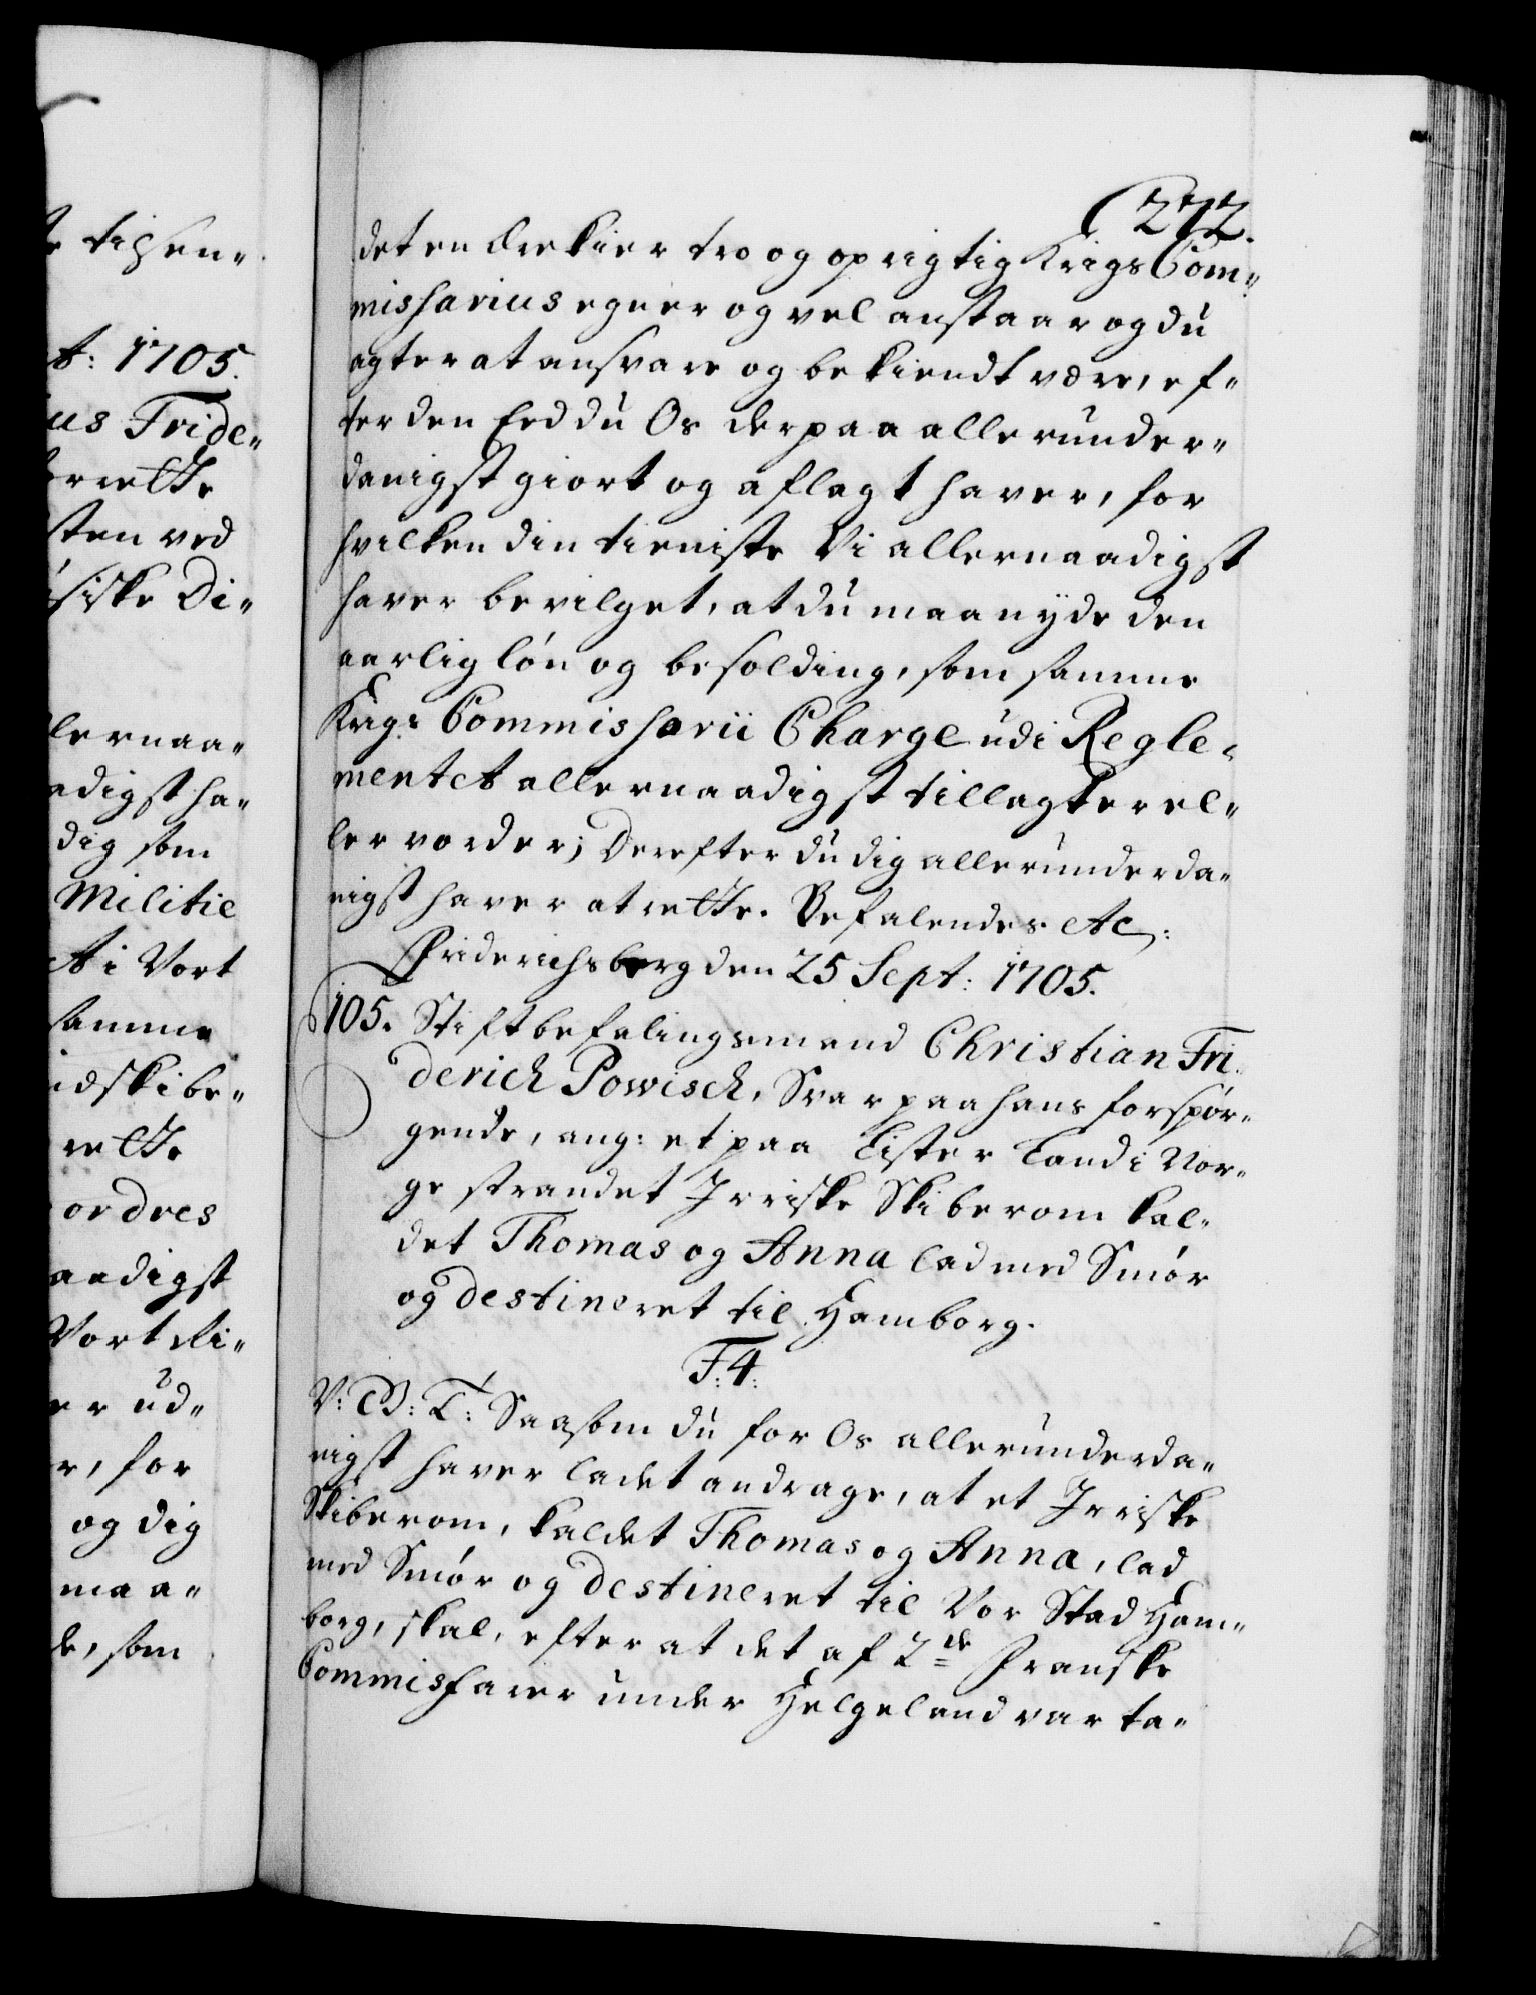 272.
det en ærekier tro og oprigtig Krigs Com„
missarius egner og vel anstaar og du
agter at ansvare og bekiendt være, ef„
ter den Eed du Os derpaa allerunder„
danigst giort og aflagt haver, for
hvilken din tieniste Vi allernaadigst
haver bevilget, at du maa nyde den
aarlig løn og besolding, som samme
Krigs Commissarii Charge udi Regle„
mentet allernaadigst tillagt er el„
ler vorder; Derefter du dig allerunderda„
nigst haver at rette. Befalendes etc:
Friderichsberg den 25 Sept: 1705.
105. Stiftbefalingsmand Christian Fri„
derich Powisch, Svar paa hans forspør„
gende, ang: et paa Lister Land i Nor„
ge strandet Irriske Skiberom kal„
det Thomas og Anna lad med Smør
og destineret til Hamborg.
F: 4:
V: G: T: Saasom du for Os allerunderda„
nigst haver ladet andrage, at et Irriske
Skiberom, kaldet Thomas og Anna, lad
med Smør og destineret til Vor Stad Ham„
borg, skal, efter at det af 2de Franske
Commissfarer under Helgeland var ta„
te tihen„
t: 1705.
us Fride„
rette
sten ved
siske Di„
lernaa„
adigst ha„
dig som
Militie
t i Vort
samme
idskibe„
rette
ordres
aadigst
Vort Ri„
er ud„
r, for
og dig
maa„
de, som